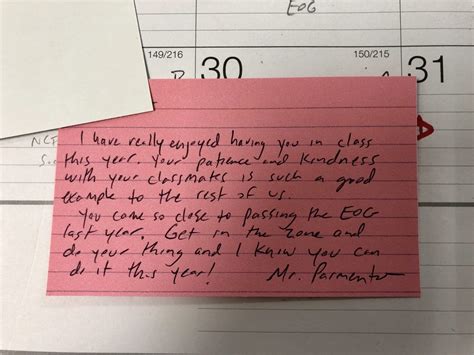 EOG
149/216
30
150/215
31
NCF
I have really enjoyed having you in class
this year. Your patience and kindness
with your classmates is such a good
example to the rest of us.
You came so close to passing the EOG
last year. Get in the zone and
do your thing and I know you can
do it this year! Mr. Parmenter